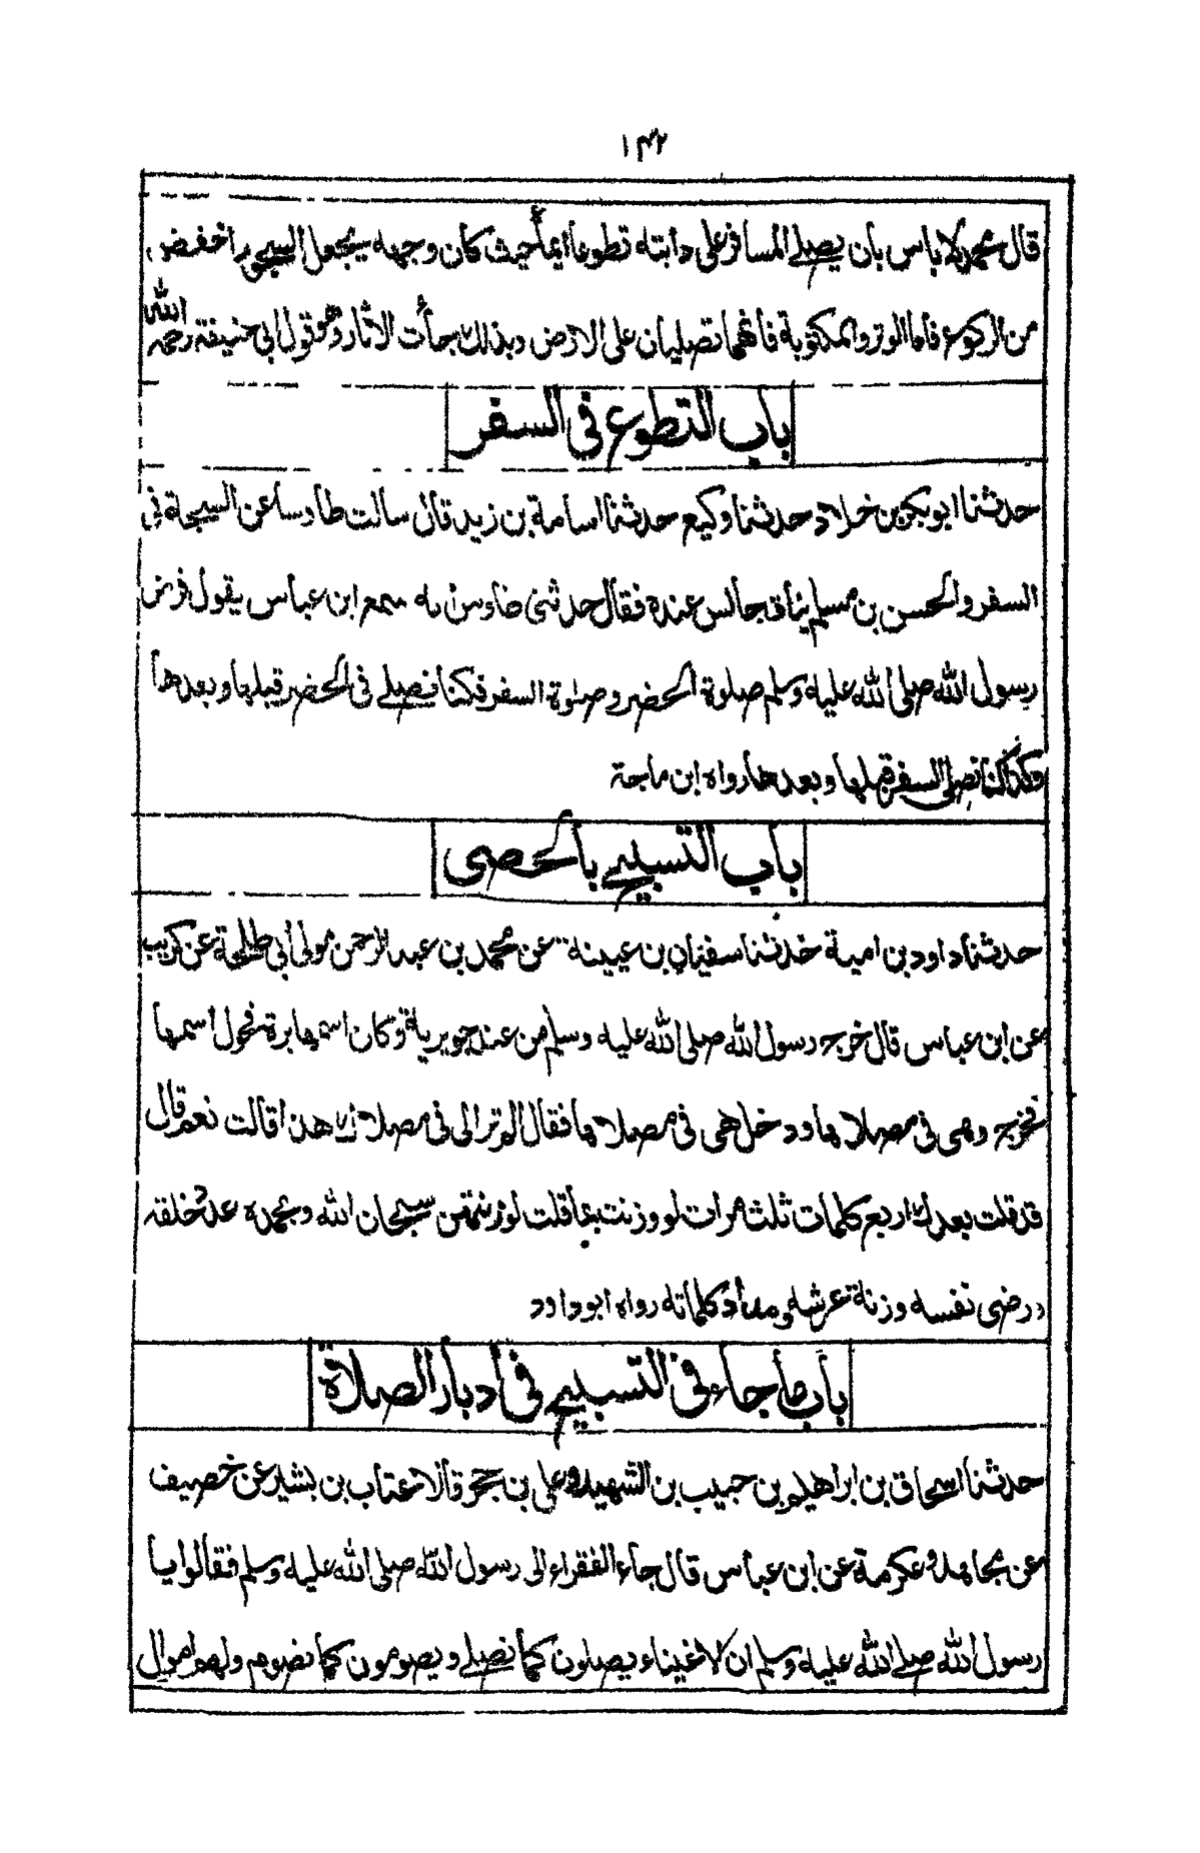 ۱۴۲
قال محمد لا باس بان يصلے المسافر على دابته تطوعا ايماء حيث كان وجهه يجعل السجود اخفض
من الركوع فاما الوتر والمكتوبة فانهما تصليان على الارض وبذلك جأت الاثار وهو قول ابي حنيفة رحمه الله
باب التطوع فى السفر
حدثنا ابو بكر بن خلاد حدثنا وكيع حدثنا اسامة بن زيد قال سالت طاوسا عن السبحة فى
السفر والحسن بن مسلم بن يناق جالس عنده فقال حدثنى طاوس انه سمع ابن عباس يقول فرض
رسول الله صلى الله عليه وسلم صلوة الحضر وصلوة السفر فكنا نصلے فى الحضر قبلها وبعدها
وكذا كنا نصلى السفر قبلها وبعدها رواه ابن ماجة
باب التسبيح بالحصى
حدثنا داود بن امية حدثنا سفيان بن عيينة عن محمد بن عبد الرحمن مولى أبي طلحة عن كريب
عن ابن عباس قال خرج رسول الله صلى الله عليه وسلم من عند جويرية وكان اسمها برة فحول اسمها
فخرج وهى فى مصلاها ودخل هى فى مصلاها فقال الم تزالى فى مصلاك هذا قالت نعم قال
قد قلت بعدك اربع كلمات ثلث مرات لو وزنت بما قلت لوزنتهن سبحان الله وبحمده عدد خلقه
ورضى نفسه وزنة عرشه ومداد كلماته رواه ابو داود
باب ما جاء فى التسبيح فى أدبار الصلاة
حدثنا اسحاق بن ابراهيم بن حبيب بن الشهيد وعلى بن حجر قالا عتاب بن بشير عن خصيف
عن مجاهد وعكرمة عن ابن عباس قال جاء الفقراء الى رسول الله صلى الله عليه وسلم فقالوا يا
رسول الله صلے الله عليه وسلم ان لاغنياء يصلون كما نصلے ويصومون كما نصوم ولهم اموال